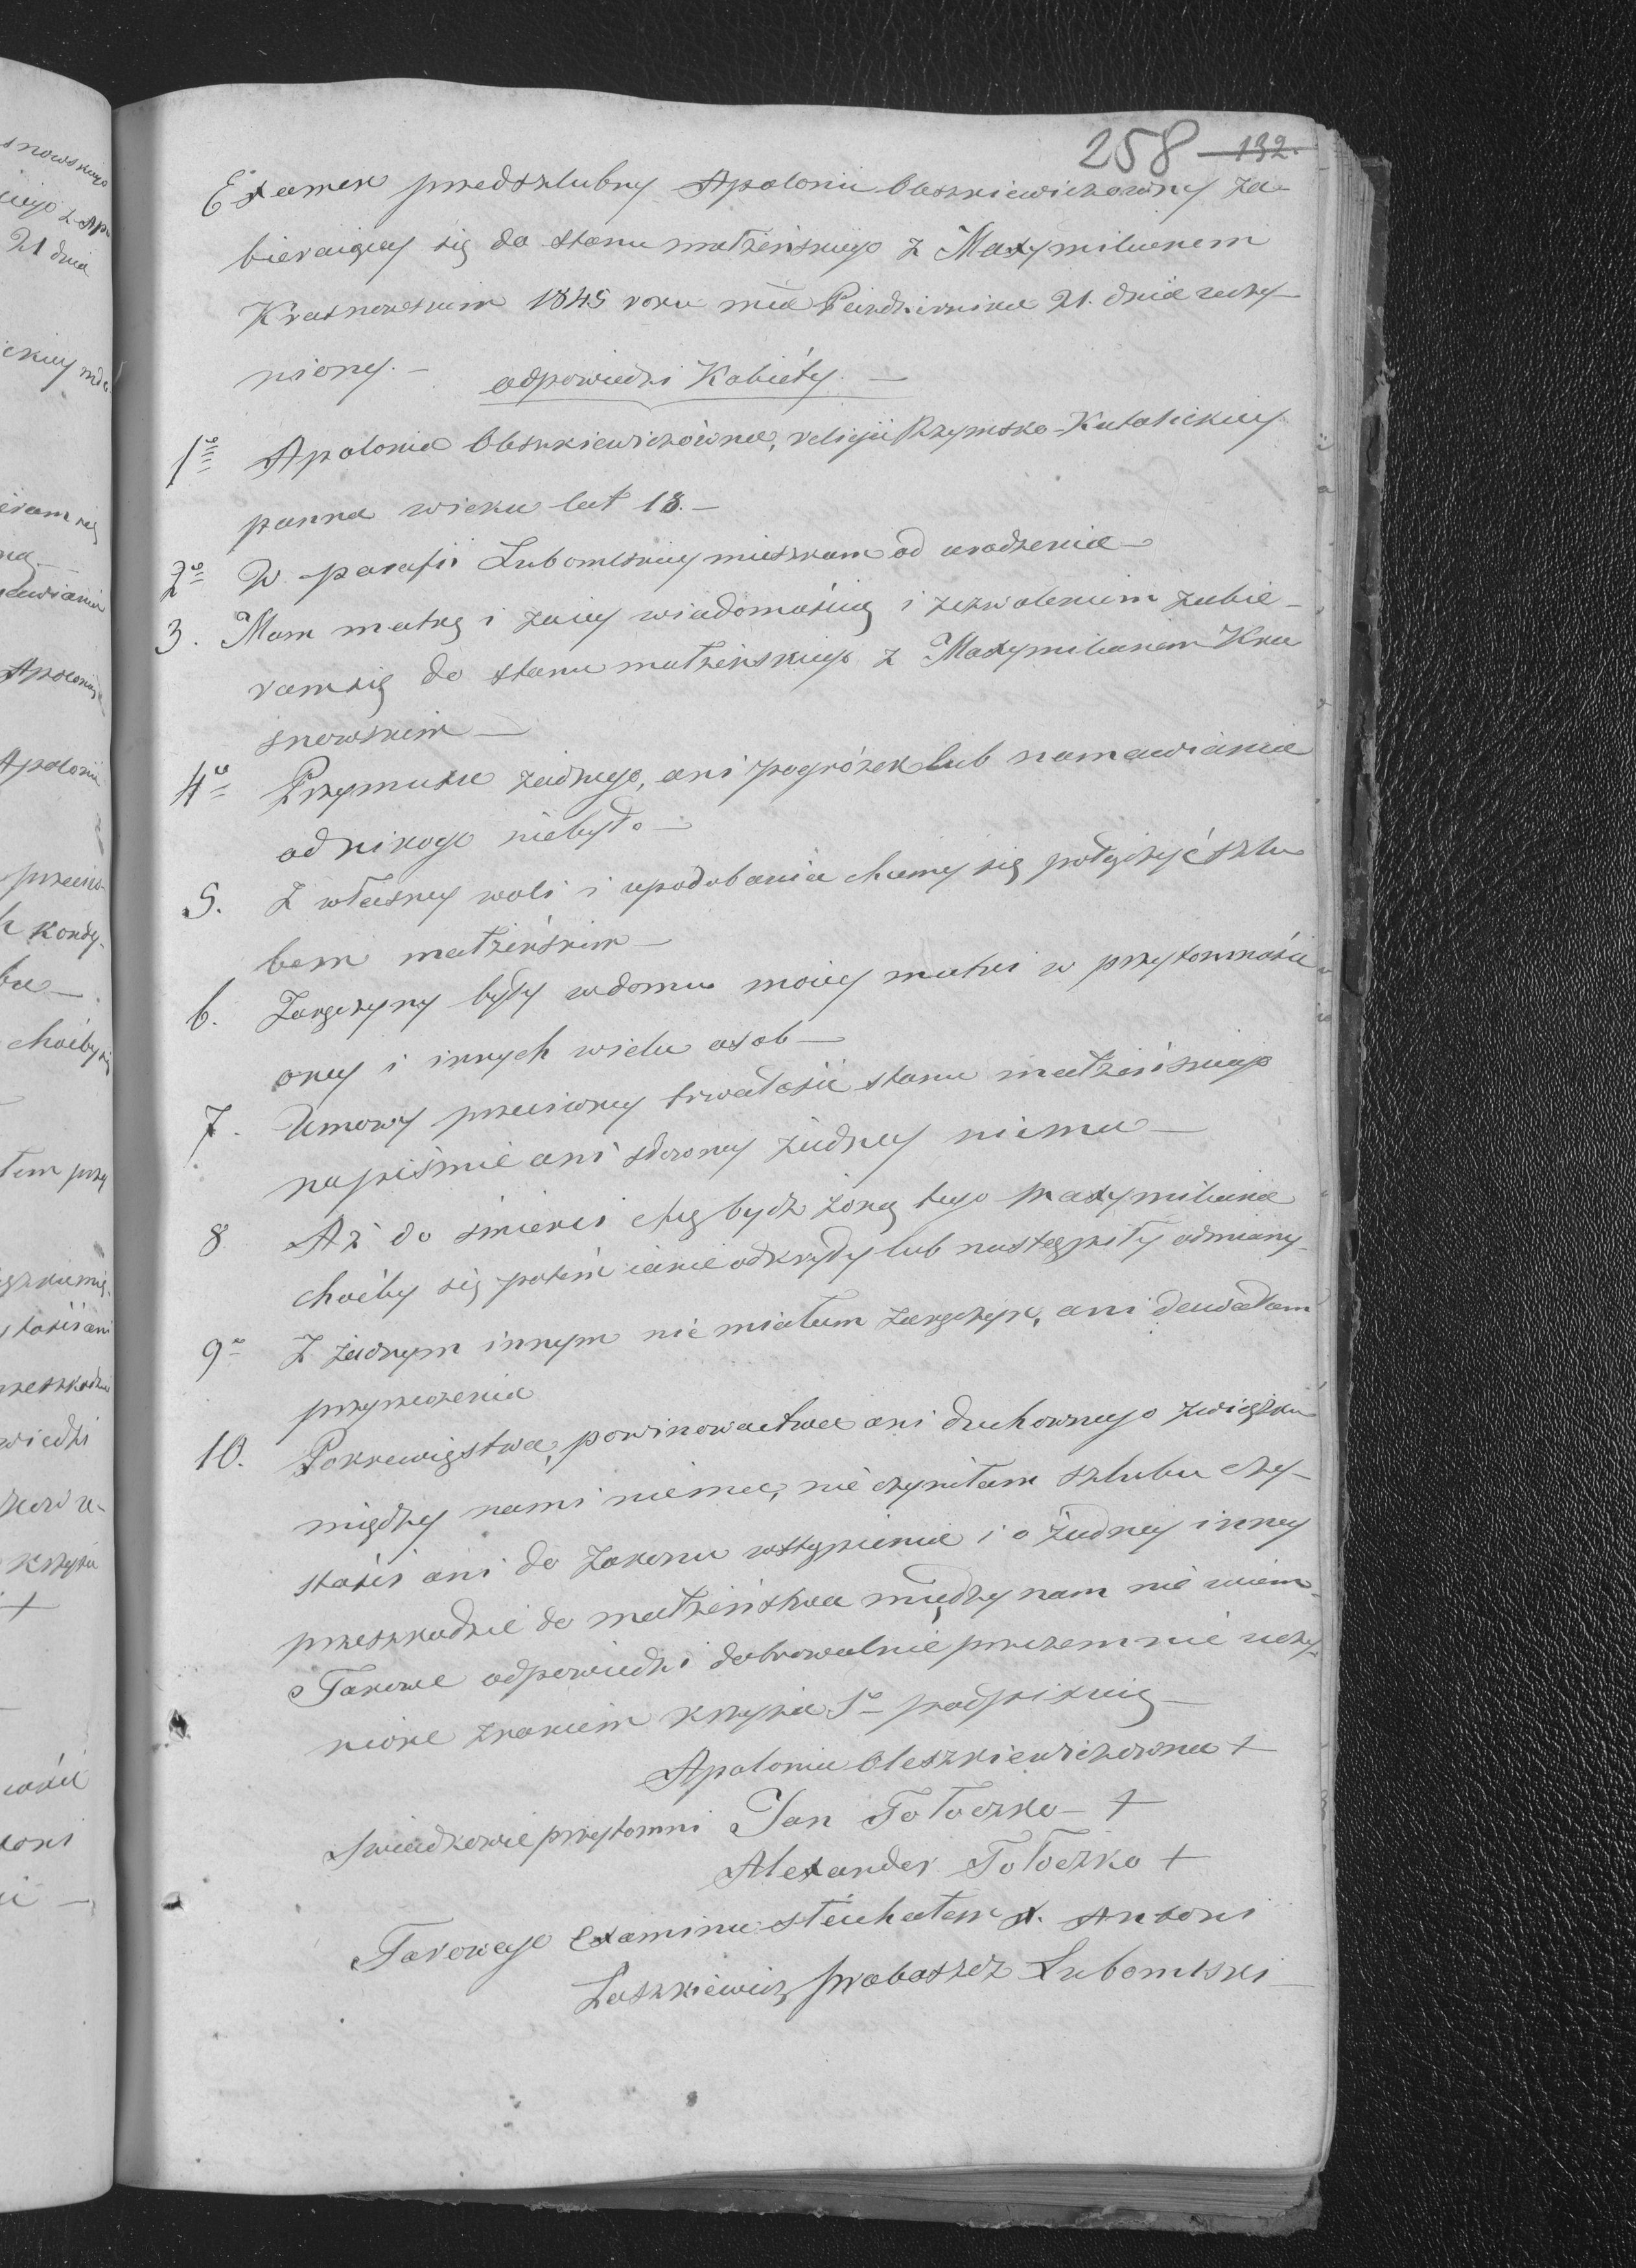 258 132.
Examen przedszlubny Apolonii Oleszkiewiczowny za-
bieraiącey się do stanu małżeńskiego z Maxymilianem
Krasnowskim 1845 roku mca Pazdziernika 21. dnia uczy-
niony. — odpowiedzi Kobiéty. —
1º Apolonia Oleszkiewiczówna, religii Rzymsko-Katolickiey
panna wieku lat 18. —
2º W parafii Lubomlskiey mieszkam od urodzenia —
3. Mam matkę i zaiey wiadomością i zezwoleniem zabie-
ramsię do stanu małżeńskiego z Maxymilianem Kra
snowskim —
4º Przymusu żadnego, ani pogróżek lub namawiania
od nikogo niebyło —
5. Z własney woli i upodobania chcemy się połączyć szlu
bem małżeńskim —
6. Zaręczyny były wdomu moiey matki w przytomności
oney i innych wielu osob —
7. Umowy przeciwney trwałości stanu małżeńskiego
napiśmie ani słowney żadney niema —
8 Aż do śmierci chcę bydz żoną tego Maxymiliana
choćby się potém iakie odkryły lub nastąpiły odmiany.
9º Z żadnym innym nie miałam zaręczyn, ani dawałam
przyrzeczenia
10. Pokrewięstwa, powinowactwa ani duchownego związku
między nami niema, nie czyniłam szlubu czy-
stości ani do zakonu wstąpienia i o żadney inney
przeszkodzie do małżeństwa między nam nie wiem.
Takowe odpowiedzi dobrowolnie przezemnie uczy-
nione znakiem krzyża Sº podpisuię —
Apolonia Oleszkiewiczowna +
Swiadkowie przytomni Jan Tołoczko — +
Alexander Tołoczko +
Takowego examinu słuchałem X. Antoni
Laszkiewicz proboszcz Lubomlski —